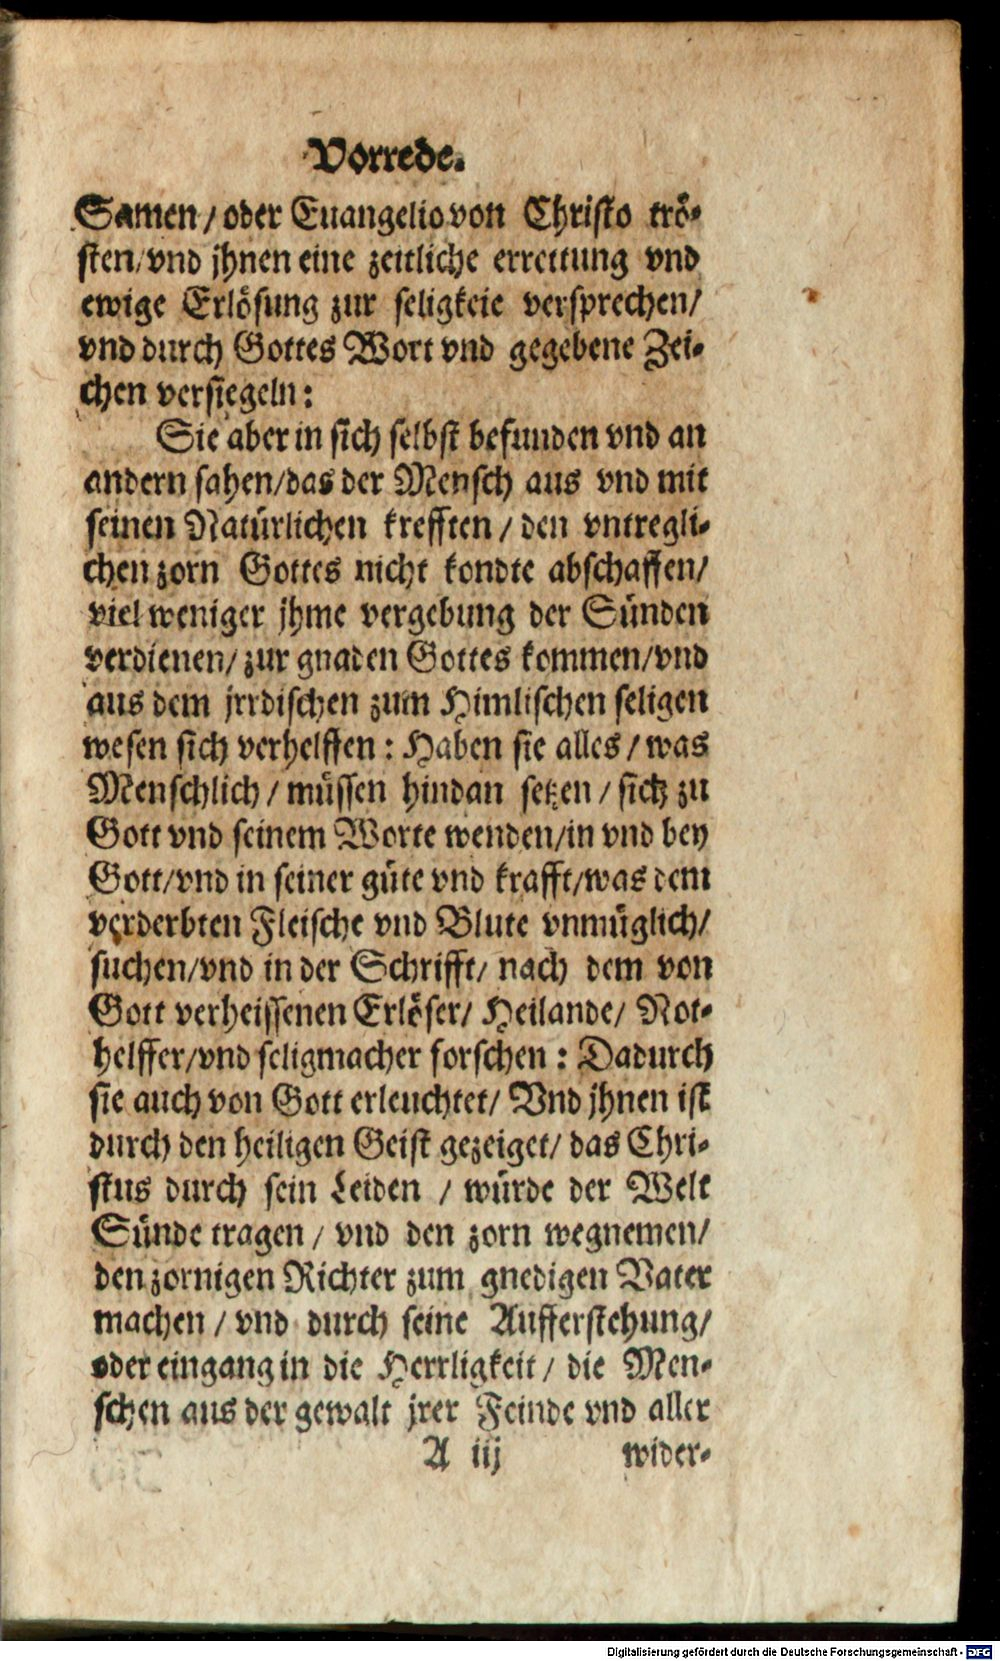 Vorrede.
Samen / oder Euangelio von Christo trö-
sten / vnd jhnen eine zeitliche errettung vnd
ewige Erlösung zur seligkeit versprechen /
vnd durch Gottes Wort vnd gegebene Zei-
chen versiegeln:
Sie aber in sich selbst befunden vnd an
andern sahen / das der Mensch aus vnd mit
seinen Natürlichen krefften / den vntregli-
chen zorn Gottes nicht kondte abschaffen /
viel weniger jhme vergebung der Sünden
verdienen / zur gnaden Gottes kommen / vnd
aus dem jrrdischen zum Himlischen seligen
wesen sich verhelffen: Haben sie alles / was
Menschlich / müssen hindan setzen / sich zu
Gott vnd seinem Worte wenden / in vnd bey
Gott / vnd in seiner güte vnd krafft / was dem
verderbten Fleische vnd Blute vnmüglich /
suchen / vnd in der Schrifft / nach dem von
Gott verheissenen Erlöser / Heilande / Not-
helffer / vnd seligmacher forschen: Dadurch
sie auch von Gott erleuchtet / Vnd jhnen ist
durch den heiligen Geist gezeiget / das Chri-
stus durch sein Leiden / würde der Welt
Sünde tragen / vnd den zorn wegnemen /
den zornigen Richter zum gnedigen Vater
machen / vnd durch seine Aufferstehung /
oder eingang in die Herrligkeit / die Men-
schen aus der gewalt jrer Feinde vnd aller
A iij wider-
Digitalisierung gefördert durch die Deutsche Forschungsgemeinschaft - DFG